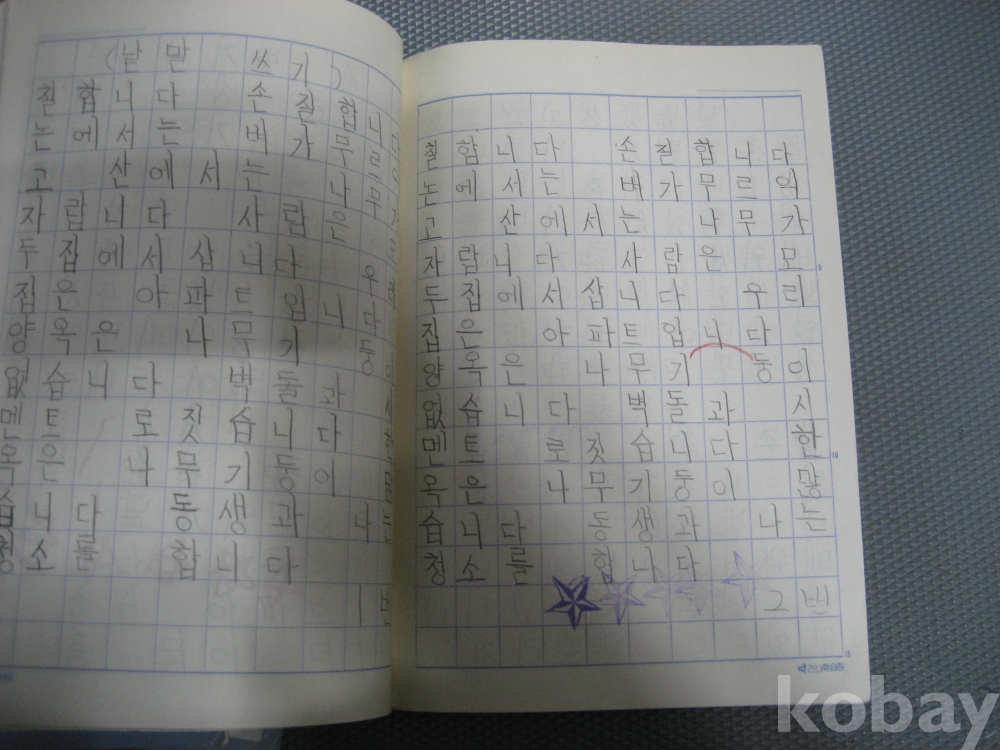 (낱말 쓰기)
칠합니다 손질합니다
논에서는 벼가 무르
고 산에서는 나무
자랍니다 사람은
두 집에서 삽니다 우
집은 아파트입니다
양옥은 나무기둥
없습니다 벽돌과
멘트로 짓습니다
옥은 나무기둥이
습니다 동생과 나
청소를 합니다
1번
칠합니다 손질합니다
논에서는 벼가 무르익
고 산에서는 나무가
자랍니다 사람은 모
두 집에서 삽니다 우리
집은 아파트입니다
양옥은 나무기 둥이
없습니다 벽돌과 시
멘트로 짓습니다 한
옥은 나무기둥이 많
습니다 동생과 나는
청소를 합니다
2번
5
10
15
kobay